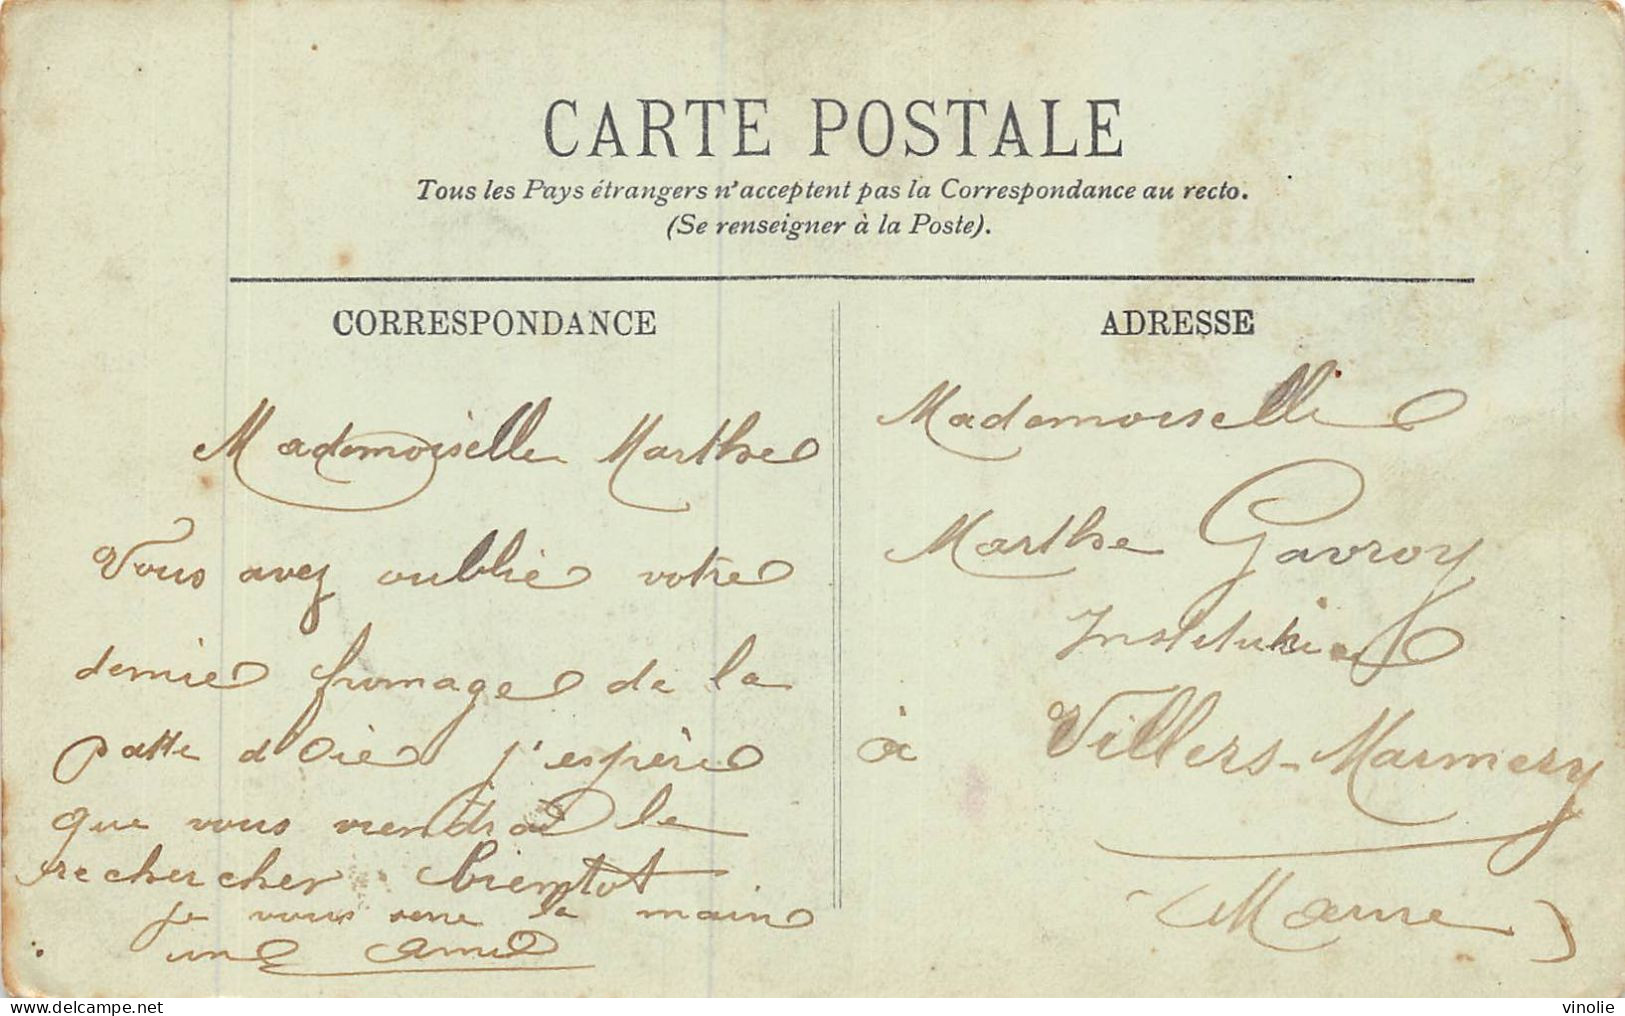 CARTE POSTALE
Tous les Pays étrangers n'acceptent pas la Correspondance au recto.
(Se renseigner à la Poste).
CORRESPONDANCE
Mademoiselle Marthe
Vous avez oublié votre
demie fromage de la
patte d'Oie j'espère
que vous viendrai le
rechercher bientot
je vous sere la main
une amie
ADRESSE
Mademoiselle
Marthe Gavroy
Institutrice
à Villers-Marmery
(Marne)
delcampe.net
vinolie